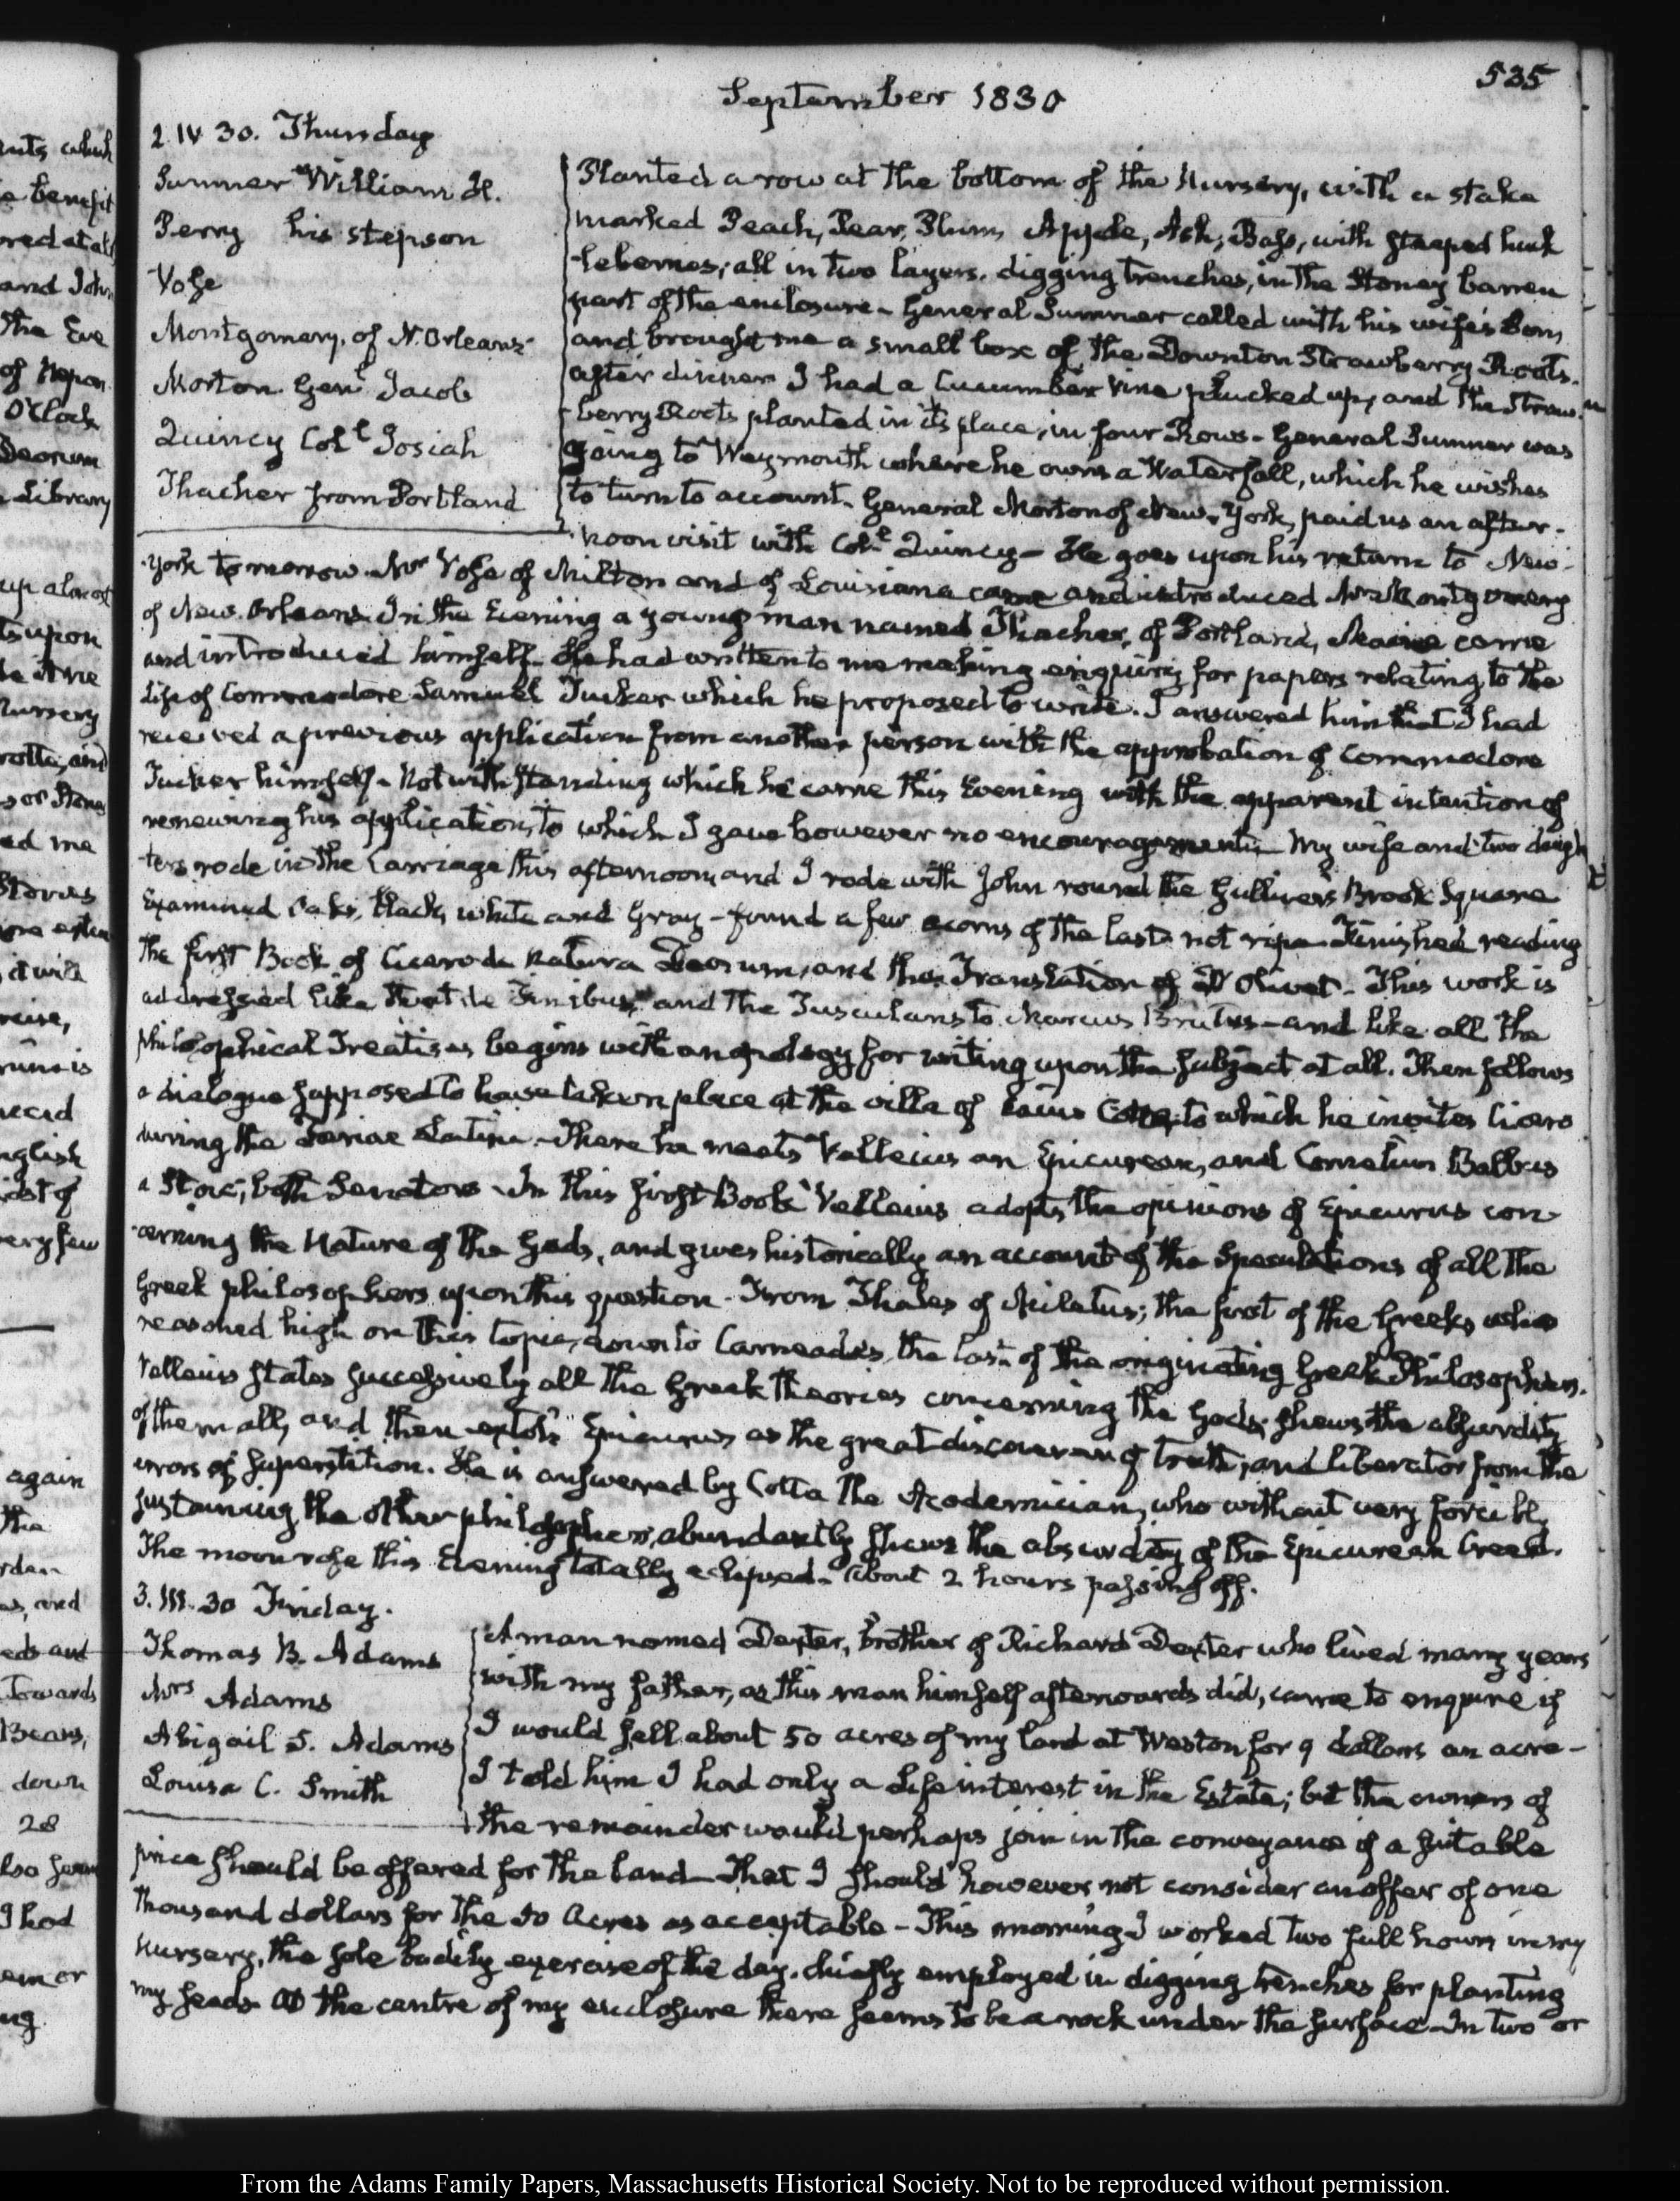 535
September 1830
2. IV 30. Thursday
Sumner William H.
Perry his stepson
Vose
Montgomery. of N. Orleans
Morton Genl. Jacob
Quincy Colt. Josiah
Thacher from Portland
Planted a row at the bottom of the Nursery, with a stake
marked Peach, Pear, Plum, Apple, Ash, Bass, with steeped huck
-leberries; all in two layers. digging trenches, in the Stoney barren
part of the enclosure - General Sumner called with his wife's Son,
and brought me a small box of the Downton Strawberry Roots.
after dinner I had a Cucumber vine plucked up, and the Straw-
-berry Roots planted in its place, in four Rows - General Sumner was
going to Weymouth where he owns a Waterfall, which he wishes
to turn to account. General Morton of New-York, paid us an after-
noon visit with Colt. Quincy - He goes upon his return to New-
York tomorrow. Mr Vose of Milton and of Louisiana came and introduced Mr Montgomery
of New-Orleans. In the Evening a young man named Thacher, of Portland, Maine came
and introduced himself. He had written to me making enquiry for papers relating to the
Life of Commodore Samuel Tucker which he proposed to write. I answered him that I had
received a previous application from another person with the approbation of Commodore
Tucker himself - Notwithstanding which he came this Evening with the apparent intention of
renewing his application, to which I gave however no encouragement. My wife and two daugh
-ters rode in the Carriage this afternoon, and I rode with John round the Gulliver's Brook Square
Examined Oaks, black, white and Gray - found a few acorns of the last not ripe - Finished reading
the first Book of Cicero de Natura Deorum, and the Translation of D'Olivet - This work is
addressed like that de Finibus, and the Tusculans to Marcus Brutus - and like all the
philosophical Treatises begins with an apology for writing upon the subject at all. Then follows
a dialogue supposed to have taken place at the villa of Caius Cotta, to which he invites Cicero
during the Feriae Latinae - There he meets Velleius an Epicurean, and Cornelius Balbus
a Stoic, both Senators - In this first Book Velleius adopts the opinions of Epicurus con-
-cerning the Nature of the Gods, and gives historically an account of the Speculations of all the
Greek philosophers upon this question - From Thales of Miletus; the first of the Greeks who
reasoned high on this topic, down to Carneades, the last of the originating Greek Philosophers.
Velleius states successively all the Greek theories concerning the Gods; shews the absurdity
of them all, and then extols Epicurus as the great discoverer of truth; and liberator from the
errors of Superstition. He is answered by Cotta the Academician, who without very forcibly
sustaining the other philosophers, abundantly shews the absurdity of the Epicurean Creed.
The moon rose this Evening totally eclipsed - about 2 hours passing off.
3. III. 30 Friday.
Thomas B. Adams
Mrs Adams
Abigail S. Adams
Louisa C. Smith
A man named Dexter, brother of Richard Dexter who lived many years
with my father, as this man himself afterwards did, came to enquire if
I would sell about 50 acres of my land at Weston for 9 dollars an acre -
I told him I had only a Life interest in the Estate; but the owners of
the remainder would perhaps join in the conveyance if a suitable
price should be offered for the land - That I should however not consider an offer of one
thousand dollars for the 50 Acres as acceptable - This morning I worked two full hours in my
Nursery, the sole bodily exercise of the day. chiefly employed in digging trenches for planting
my seeds - At the centre of my enclosure there seems to be a rock under the surface - In two or
From the Adams Family Papers, Massachusetts Historical Society. Not to be reproduced without permission.